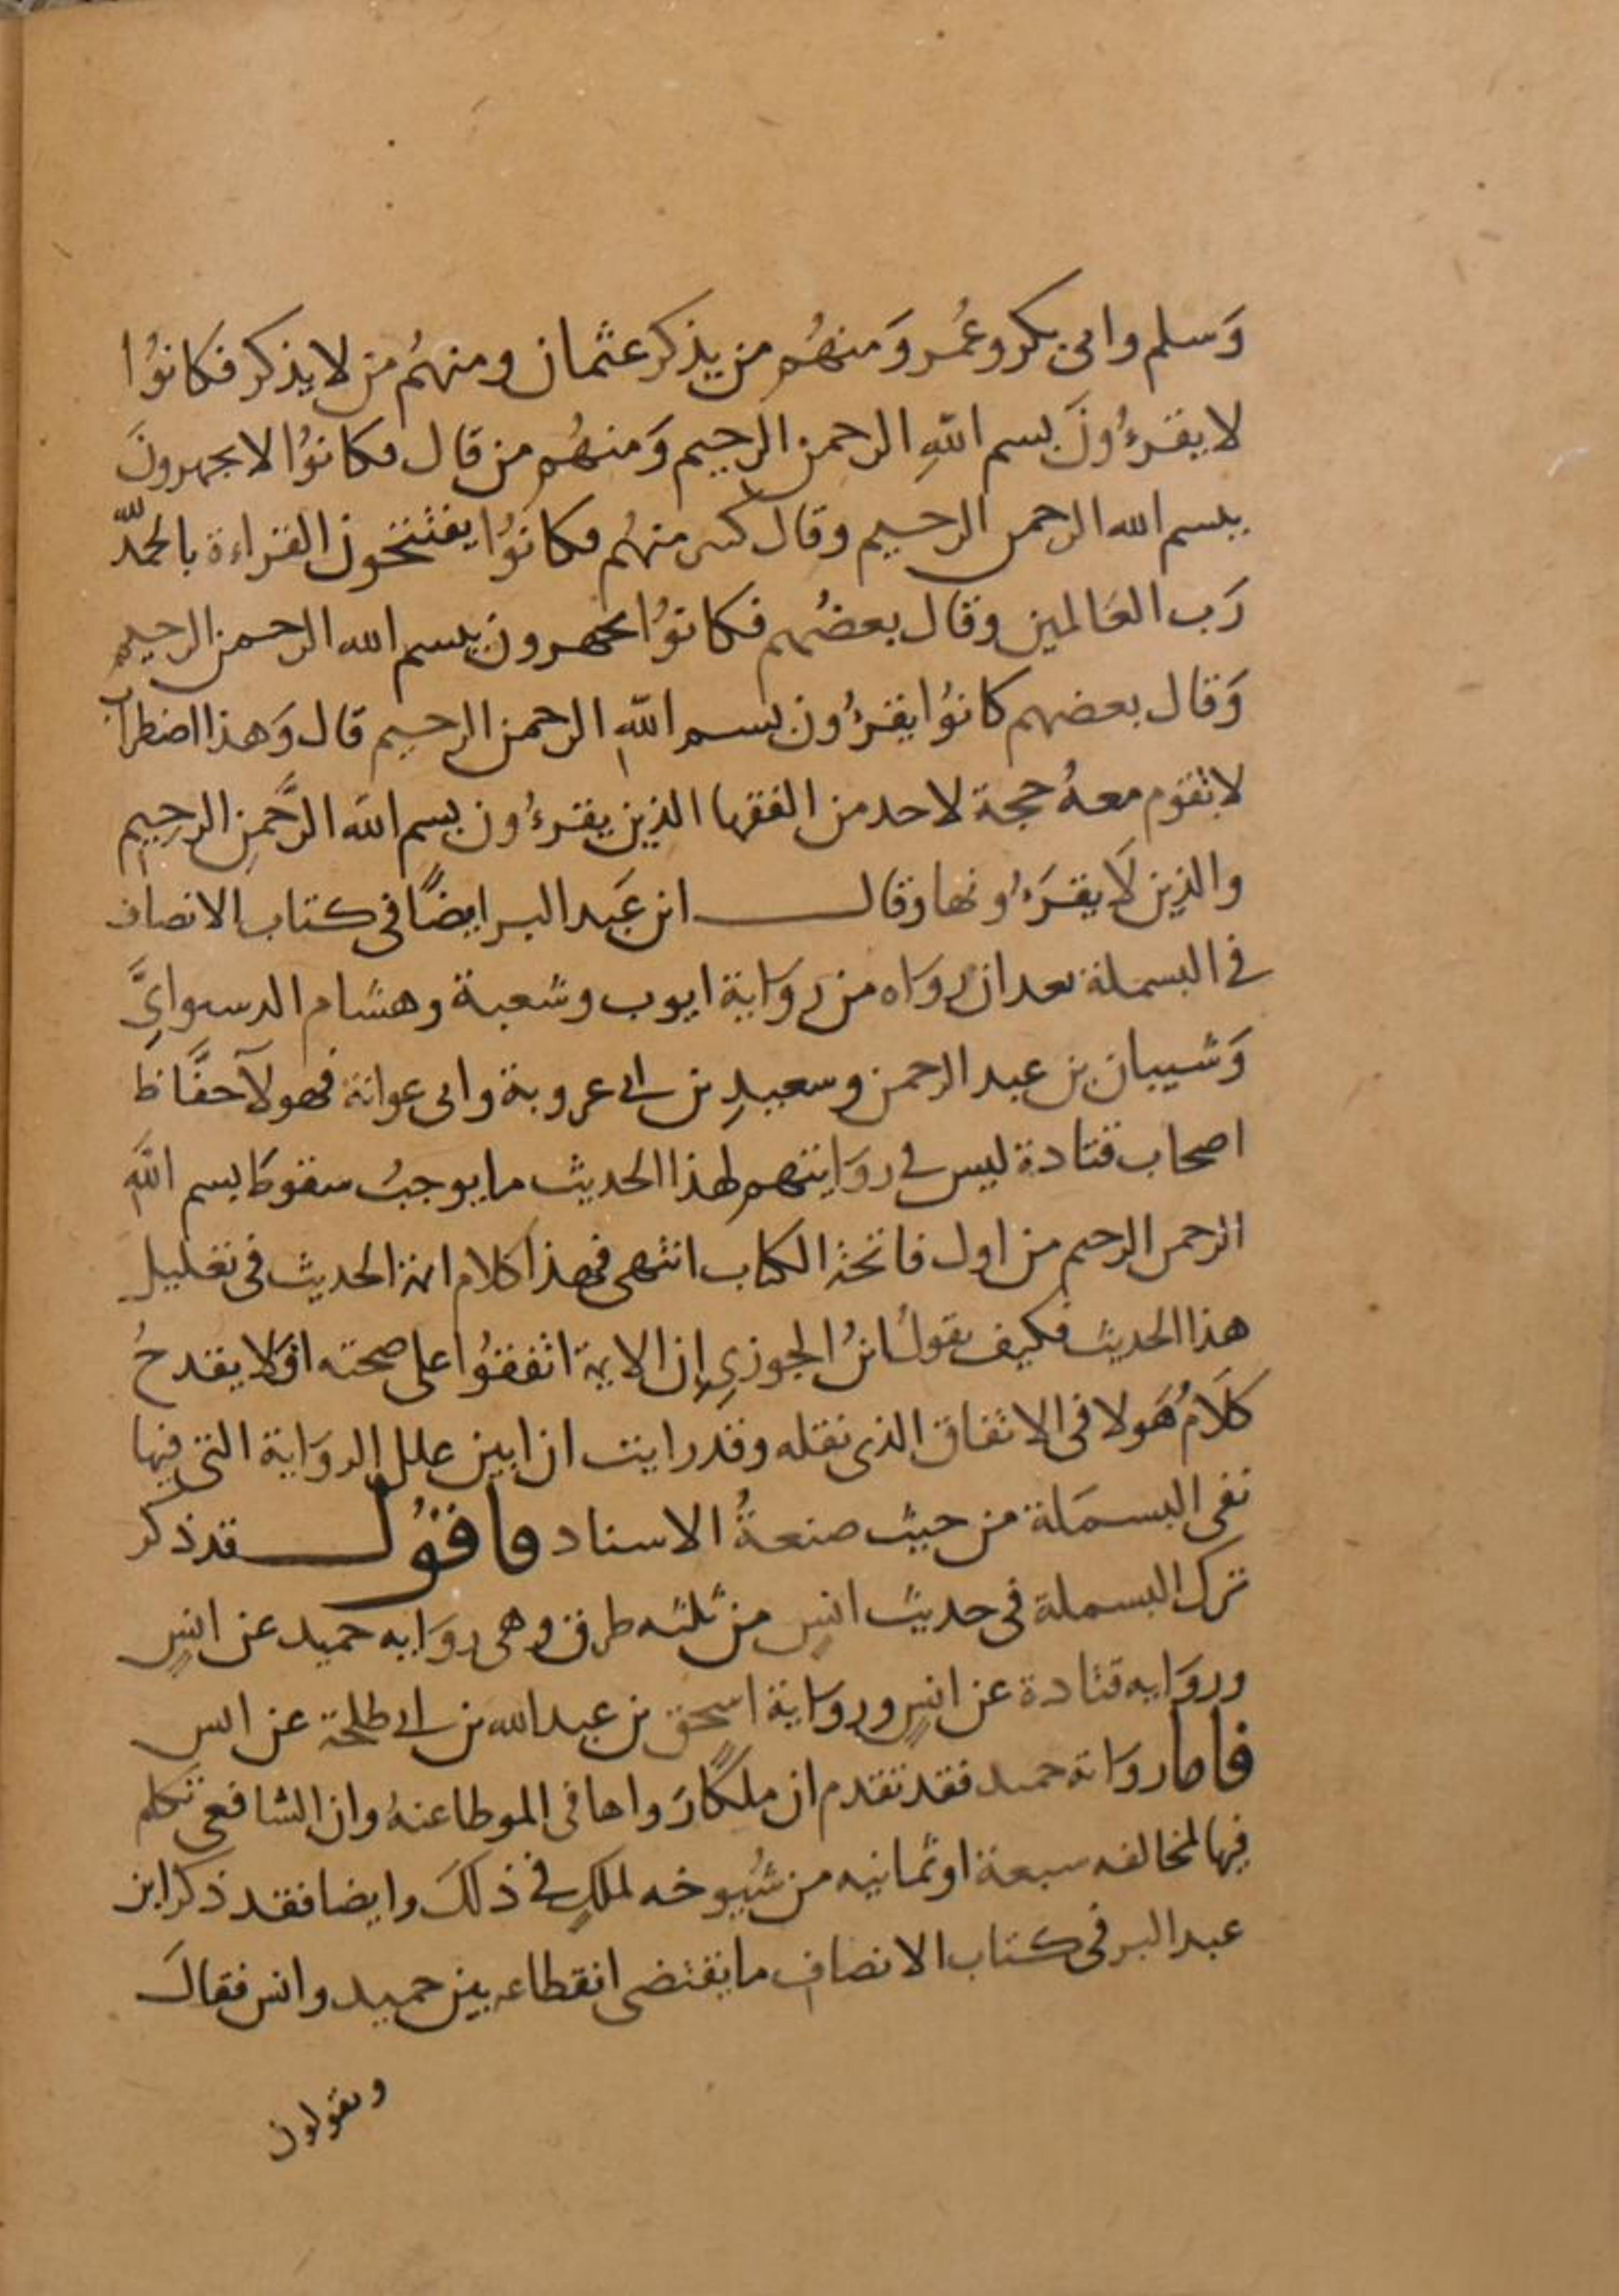 وَسلم وابى بكر وعُمر وَمنهُم من يذكر عثمان ومنهُم من لا يذكر فكانوُا
لا يقرءُونَ بسم اللهِ الرحمن الرحيم وَمنهُم من قال فكانوُا لا يجهرونَ
ببسم الله الرحمن الرحيم وقال كثير منهُم فكانوُا يفتتحون القراءة بالحمد لله
رَب العَالمين وقال بعضُهم فكانوُا يجهرون ببسم الله الرحمن الرحيم
وَقال بعضهم كانوُا يقرءُون بسم اللهِ الرحمن الرحيم قال وَهذا اضطراب
لا تقوم معهُ حجة لاحد من الفقها الذين يقرءُون بسم الله الرَّحمنِ الرحيم
والذين لَا يقرَءُونها وقال ابن عَبد البر ايضًا فى كتاب الانصاف
فى البسملة بعد ان روَاه من روَاية ايوب وشعبة وهشام الدستوايِّ
وَشيبان بن عبد الرحمن وسعيدِ بن ابى عروبة وابى عوانة فهولآ حفَّاظ
اصحاب قتادة ليس فى روَايتهم لهذا الحديث ما يوجبُ سقوط بسم اللهِ
الرحمن الرحيم من اول فاتحة الكتاب انتهى فهذا كلام ايمة الحديث فى تعليل
هذا الحديث فكيف يقولُ ابنُ الجوزيِ اِن الايمة اتفقوُا على صحته افلا يقدحُ
كلَامُ هَولا فى الاتفاق الذى نقله وقد رايت ان ابين علل الروَاية التى فيها
نفى البسمَلة من حيث صنعةُ الاسناد فاقوُل قد ذكر
ترك البسملة فى حديث انسٍ من ثلثه طرق وهى روَايه حميد عن انسٍ
وروَايه قتادة عن انسٍ وروَاية اسحق بن عبد الله بن ابى طلحة عن انس
فاما روَاية حميد فقد تقدم ان ملكًا رَواها فى الموطا عنهُ وان الشافعي تكلم
فيها لمخالفه سبعة او ثمانيه من شيُوخه لملكٍ فى ذلكَ وايضا فقد ذكر ابن
عبد البر فى كتاب الانصاف ما يقتضى انقطاعه بين حميد وانس فقالَ
ويقولون